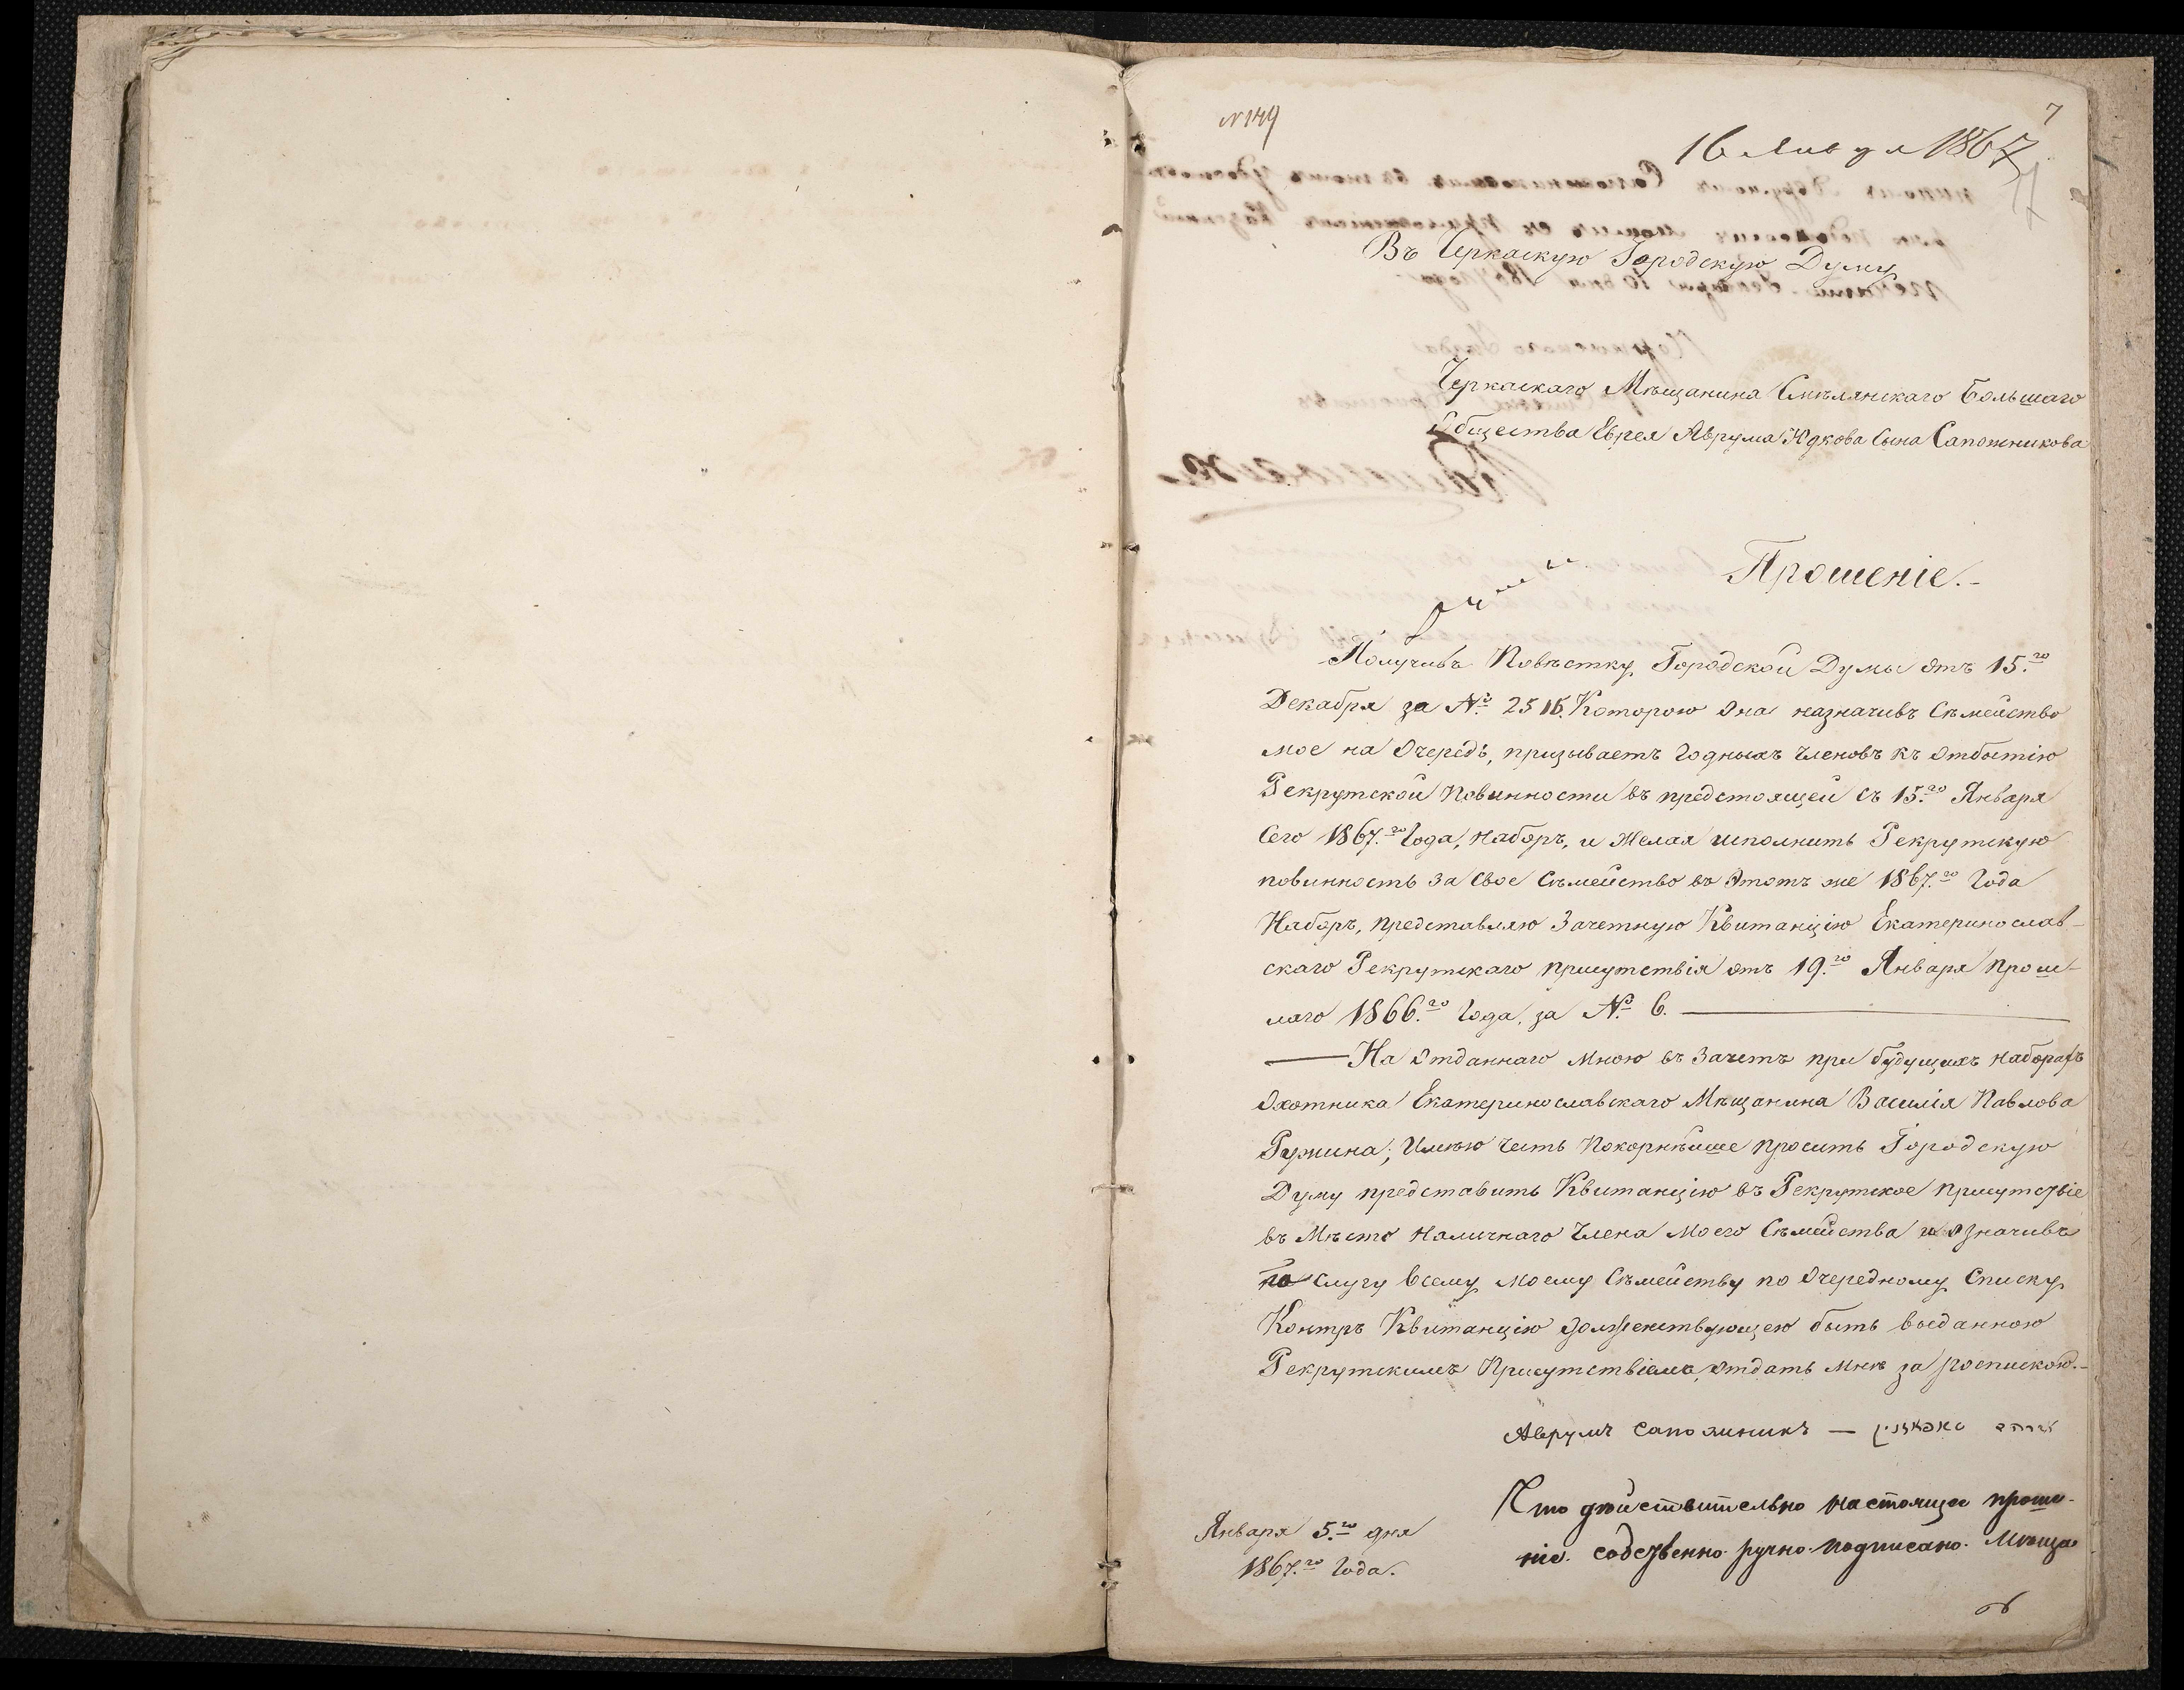 № 149
7
16 Января 1867
Въ Черкаскую Городскую Думу
Черкаскаго Мѣщанина Смѣлянскаго Большаго
Общества Еврея Аврума Юдкова Сына Сапожникова
Прошеніе.-
Получивъ Повѣстку Городской Думы отъ 15.го
Декабря за №. 2516. Которою Она назначивъ Сѣмейство
мое на Очередь, призываетъ Годныхъ Членовъ къ Отбытію
Рекрутской Повинности въ предстоящей съ 15.го Января
Сего 1867.го Года, Наборъ, и Желая исполнить Рекрутскую
повинность за Свое Сѣмейство въ Этотъ же 1867.го Года
Наборъ, представляю Зачетную Квитанцію Екатеринослав-
скаго Рекрутскаго присутствія отъ 19.го Января прош-
лаго 1866.го Года, за №. 6.
На Отданнаго Мною въ Зачетъ при будущихъ Наборахъ
Охотника Екатеринославскаго Мѣщанина Василія Павлова
Имѣю Честь Покорнѣйше просить Городскую
Думу представить Квитанцію въ Рекрутское присутствіе
въ Мѣсто Наличнаго Члена Моего Сѣмейства и Означивъ
по слугу всему моему Сѣмейству по Очередному Списку
Контръ Квитанцію долженствующею быть выданною
Рекрутскимъ Присутствіемъ, отдать Мнѣ за роспискою.-
Аврумъ Сапожникъ —
Что дѣйствительно настоящее проше-
ніе собственно ручно подписано Мѣща
Января 5.го дня
1867.го Года.